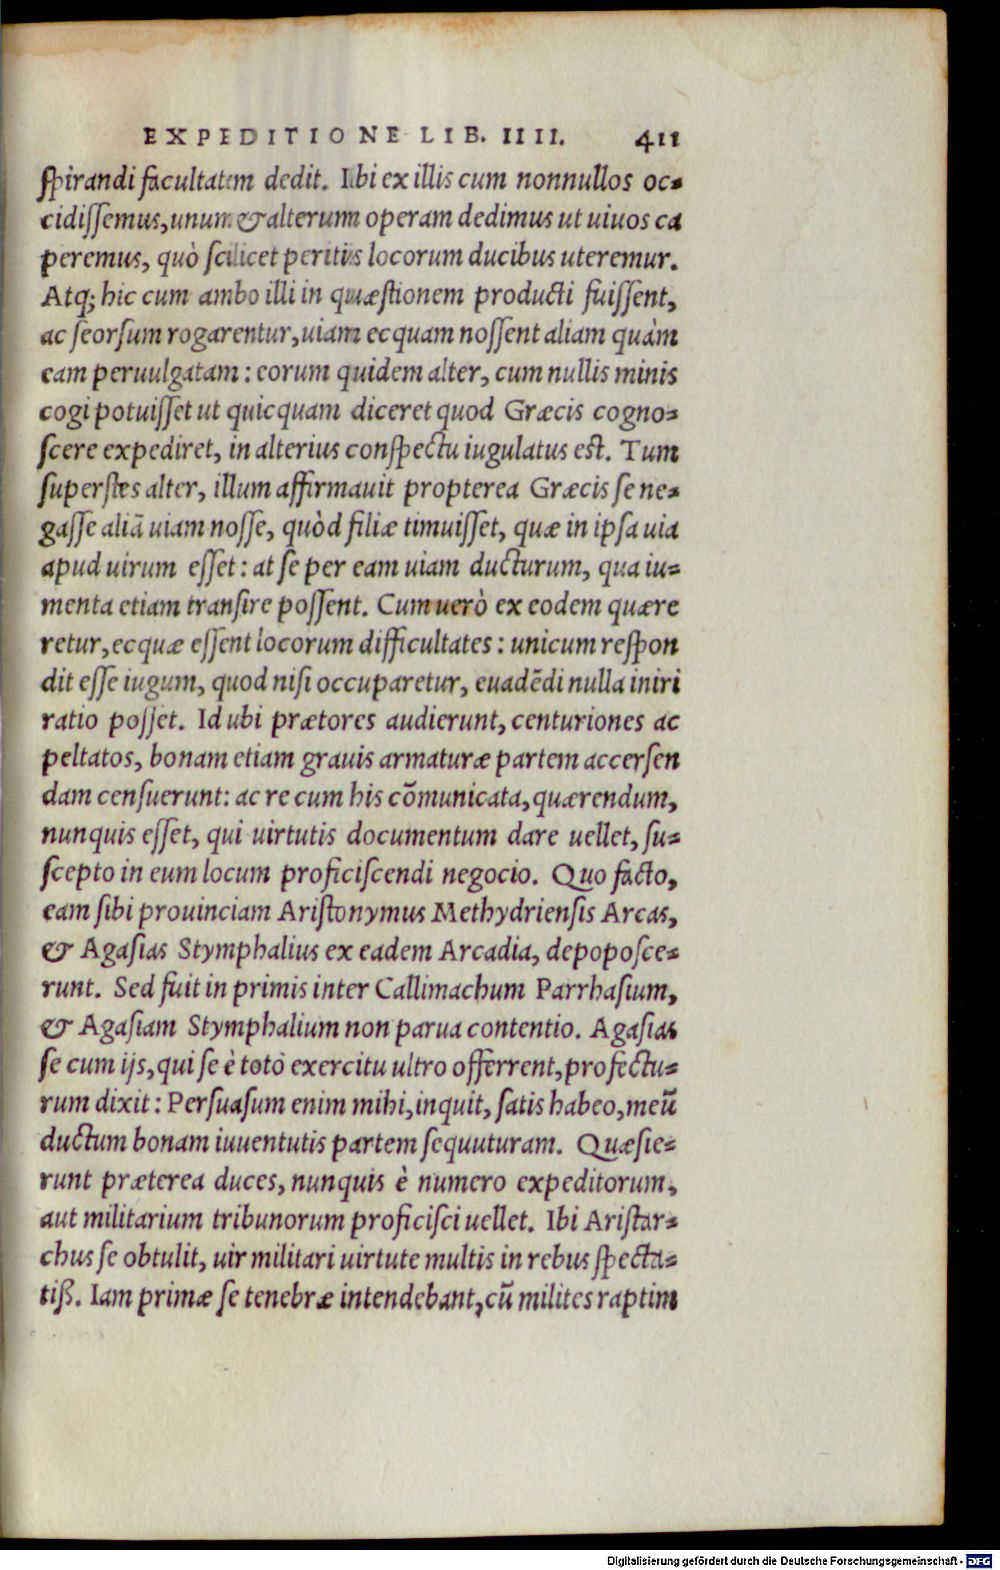 EXPEDITIONE LIB. IIII. 411
spirandi facultatem dedit. Ibi ex illis cum nonnullos oc=
cidissemus, unum & alterum operam dedimus ut uiuos ca
peremus, quò scilicet peritis locorum ducibus uteremur.
Atq; hic cum ambo illi in quæstionem producti fuissent,
ac seorsum rogarentur, uiam ecquam nossent aliam quàm
eam peruulgatam: eorum quidem alter, cum nullis minis
cogi potuisset ut quicquam diceret quod Græcis cogno=
scere expediret, in alterius conspectu iugulatus est. Tum
superstes alter, illum affirmauit propterea Græcis se ne=
gasse aliā uiam nosse, quòd filiæ timuisset, quæ in ipsa uia
apud uirum esset: at se per eam uiam ducturum, qua iu=
menta etiam transire possent. Cum uerò ex eodem quære
retur, ecquæ essent locorum difficultates: unicum respon
dit esse iugum, quod nisi occuparetur, euadēdi nulla iniri
ratio posset. Id ubi prætores audierunt, centuriones ac
peltatos, bonam etiam grauis armaturæ partem accersen
dam censuerunt: ac re cum his cōmunicata, quærendum,
nunquis esset, qui uirtutis documentum dare uellet, su=
scepto in eum locum proficiscendi negocio. Quo facto,
eam sibi prouinciam Aristonymus Methydriensis Arcas,
& Agasias Stymphalius ex eadem Arcadia, depoposce=
runt. Sed fuit in primis inter Callimachum Parrhasium,
& Agasiam Stymphalium non parua contentio. Agasias
se cum ijs, qui se è toto exercitu ultro offerrent, profectu=
rum dixit: Persuasum enim mihi, inquit, satis habeo, meū
ductum bonam iuuentutis partem sequuturam. Quæsie=
runt præterea duces, nunquis è numero expeditorum,
aut militarium tribunorum proficisci uellet. Ibi Aristar=
chus se obtulit, uir militari uirtute multis in rebus specta=
tiß. Iam primæ se tenebræ intendebant, cū milites raptim
Digitalisierung gefördert durch die Deutsche Forschungsgemeinschaft - DFG